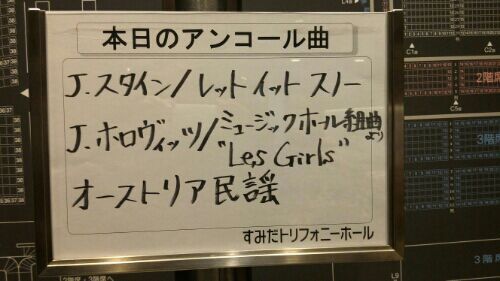 本日のアンコール曲
J.スタイン/レットイットスノー
J.ホロヴィッツ/ミュージックホール組曲より
"Les Girls"
オーストリア民謡
すみだトリフォニーホール
C1a
C4a
2階席
C5a
3階席
L9